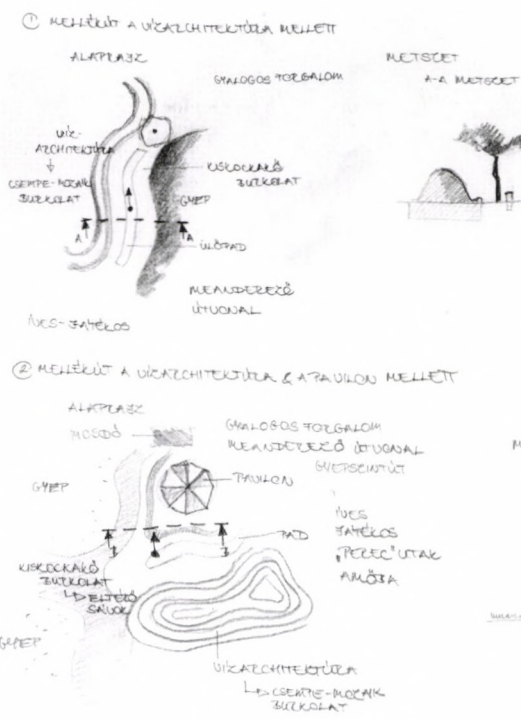 ① MELLÉKÚT A VÍZARCHITEKTÚRA MELLETT
ALAPRAJZ
METSZET
GYALOGOS FORGALOM
A-A METSZET
VÍZ-
ARCHITEKTÚRA
CSEMPE-MOZAIK
BURKOLAT
KISKOCKAKŐ
BURKOLAT
GYEP
A
A
ÜLŐPAD
MEANDEREZŐ
ÚTVONAL
ÍVES-JÁTÉKOS
② MELLÉKÚT A VÍZARCHITEKTÚRA & A PAVILON MELLETT
ALAPRAJZ
MOSDÓ
GYALOGOS FORGALOM
MEANDEREZŐ ÚTVONAL
GYEPSZINTÚT
GYEP
PAVILON
ÍVES
JÁTÉKOS
„PEREC” UTAK
AMŐBA
PAD
KISKOCKAKŐ
BURKOLAT
ELTÉRŐ
SÁVOK
GYEP
VÍZARCHITEKTÚRA
CSEMPE-MOZAIK
BURKOLAT